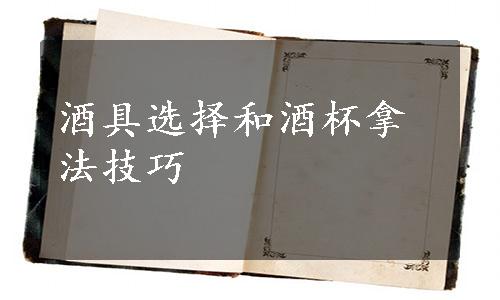 酒具选择和酒杯拿
法技巧